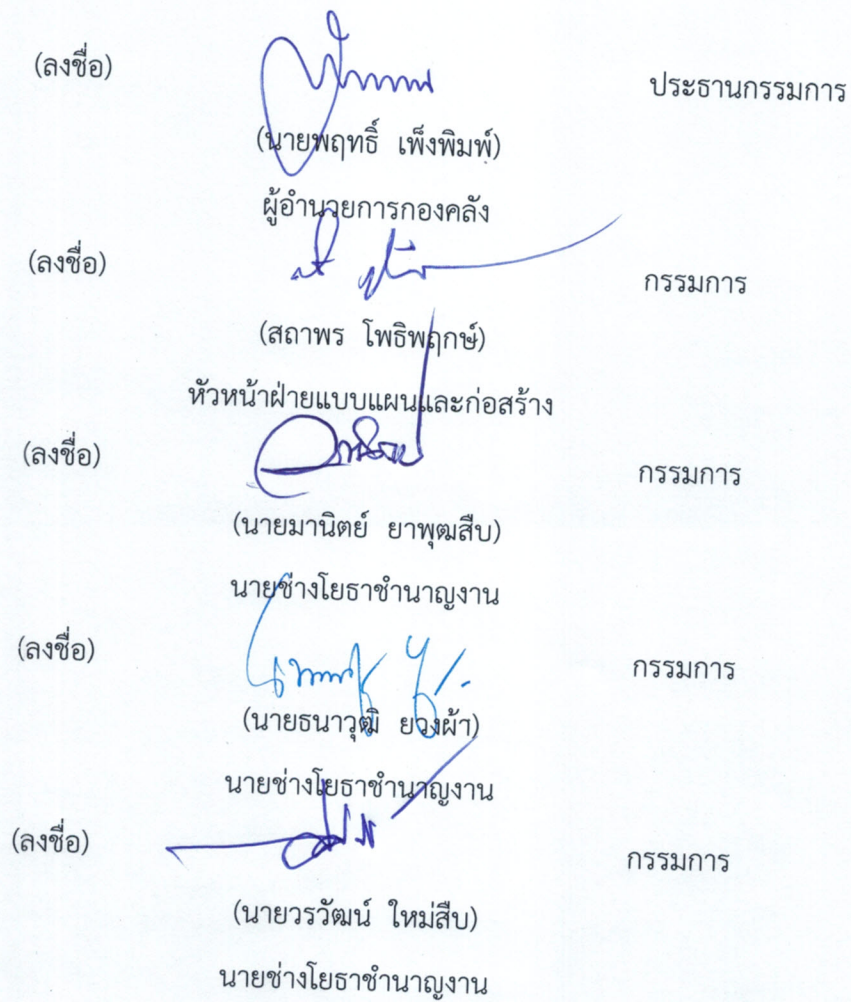 (ลงชื่อ) ประธานกรรมการ
(นายพฤทธิ์ เพ็งพิมพ์)
ผู้อำนวยการกองคลัง
(ลงชื่อ) กรรมการ
(สถาพร โพธิพฤกษ์)
หัวหน้าฝ่ายแบบแผนและก่อสร้าง
(ลงชื่อ) กรรมการ
(นายมานิตย์ ยาพุฒสืบ)
นายช่างโยธาชำนาญงาน
(ลงชื่อ) กรรมการ
(นายธนาวุฒิ ยวงผ้า)
นายช่างโยธาชำนาญงาน
(ลงชื่อ) กรรมการ
(นายวรวัฒน์ ใหม่สืบ)
นายช่างโยธาชำนาญงาน